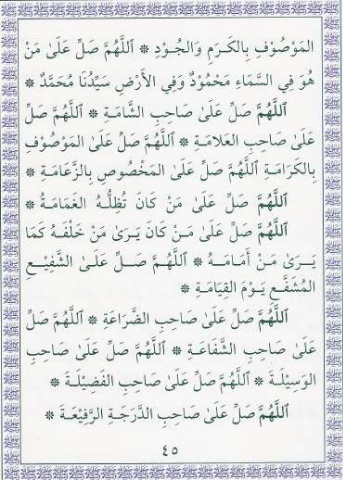 المَوْصُوْفِ بِالكَرَمِ وَالجُوْدِ ۞ اَللَّهُمَّ صَلِّ عَلَىٰ مَنْ
هُوَ فِي السَّمَاءِ مَحْمُوْدٌ وَفِي الأَرْضِ سَيِّدُنَا مُحَمَّدٌ ۞
اَللَّهُمَّ صَلِّ عَلَىٰ صَاحِبِ الشَّامَةِ ۞ اَللَّهُمَّ صَلِّ
عَلَىٰ صَاحِبِ العَلَامَةِ ۞ اَللَّهُمَّ صَلِّ عَلَىٰ المَوْصُوْفِ
بِالكَرَامَةِ اَللَّهُمَّ صَلِّ عَلَىٰ المَخْصُوصِ بِالزَّعَامَةِ ۞
اَللَّهُمَّ صَلِّ عَلَىٰ مَنْ كَانَ تُظِلُّهُ الغَمَامَةُ ۞
اَللَّهُمَّ صَلِّ عَلَىٰ مَنْ كَانَ يَرَىٰ مَنْ خَلْفَهُ كَمَا
يَرَىٰ مَنْ أَمَامَهُ ۞ اَللَّهُمَّ صَلِّ عَلَىٰ الشَّفِيْعِ
المُشَفَّعِ يَوْمَ القِيَامَةِ ۞
اَللَّهُمَّ صَلِّ عَلَىٰ صَاحِبِ الضَّرَاعَةِ ۞ اَللَّهُمَّ صَلِّ
عَلَىٰ صَاحِبِ الشَّفَاعَةِ ۞ اَللَّهُمَّ صَلِّ عَلَىٰ صَاحِبِ
الوَسِيْلَةِ ۞ اَللَّهُمَّ صَلِّ عَلَىٰ صَاحِبِ الفَضِيْلَةِ ۞
اَللَّهُمَّ صَلِّ عَلَىٰ صَاحِبِ الدَّرَجَةِ الرَّفِيْعَةِ ۞
٤٥